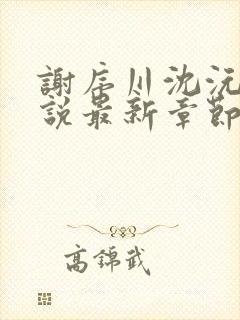 謝辰川沈沅
說最新章節
高錦武